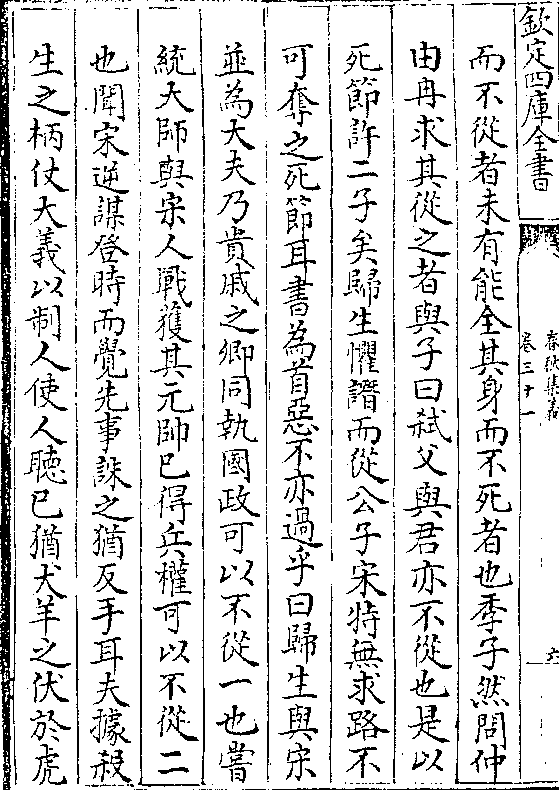 欽定四庫全書
春秋集義
卷三十一
六
而不從者未有能全其身而不死者也季子然問仲
由冉求其從之者與子曰弑父與君亦不從也是以
死節許二子矣歸生懼譖而從公子宋特無求路不
可奪之死節耳書為首惡不亦過乎曰歸生與宋
並為大夫乃貴戚之卿同執國政可以不從一也嘗
統大師與宋人戰獲其元帥已得兵權可以不從二
也聞宋逆謀登時而覺先事誅之猶反手耳夫據殺
生之柄仗大義以制人使人聽已猶犬羊之伏於虎